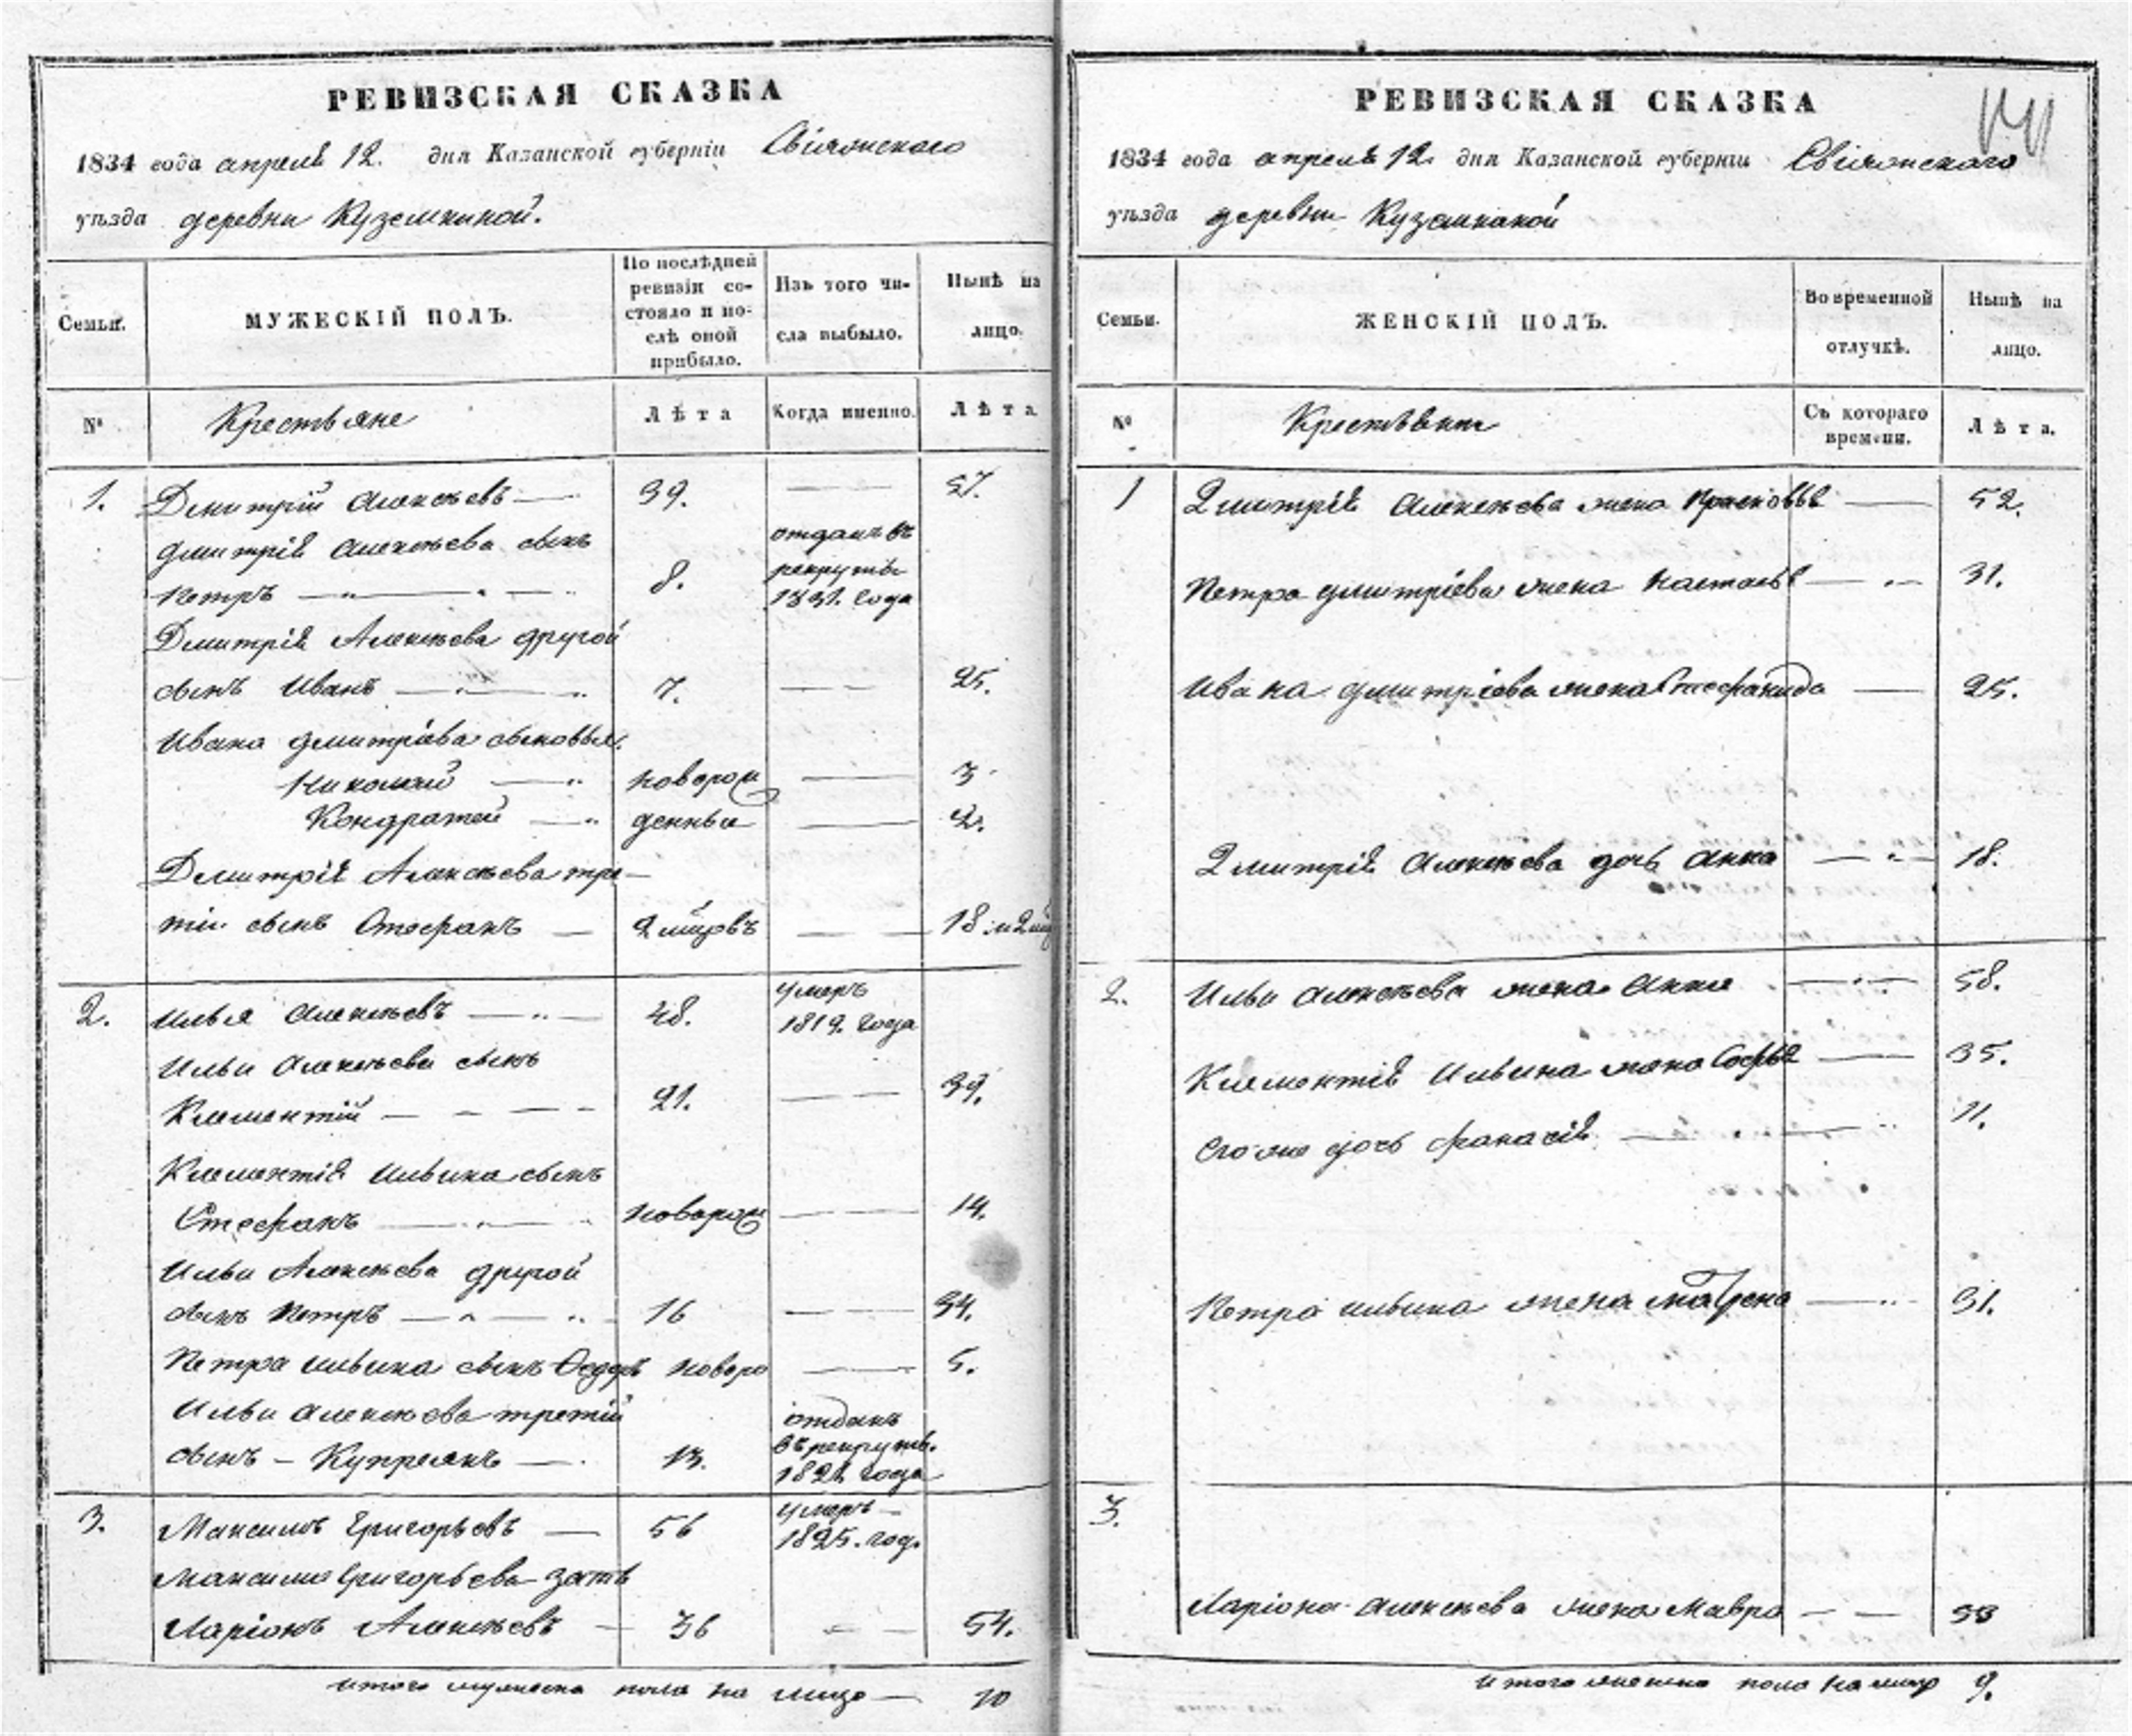 РЕВИЗСКАЯ СКАЗКА
1834 года апреля 12. дня Казанской губерніи Свіяжскаго
уѣзда деревни Куземкиной.
Семьи.
МУЖЕСКІЙ ПОЛЪ.
По послѣдней
ревизіи со-
стояло и по-
слѣ оной
прибыло.
Изъ того чи-
сла выбыло.
Нынѣ на
лицо.
№
Крестьяне
Лѣта
Когда именно.
Лѣта
1. Дмитрій Алексѣевъ 39. 57.
Дмитрій Алексѣева сынъ
Петръ 8.
отданъ въ
рекруты
1831. года
Дмитрій Алексѣева другой
сынъ Иванъ 7. 25.
Ивана Дмитріева сыновья
Николай новорож 3
Кондратей денныи 2.
Дмитрій Алексѣева тре-
тіи сынъ Стефанъ 2 мцовъ 18 и 2
2. Илья Алексѣевъ 48.
умеръ
1819. года
Ильи Алексѣева сынъ
Клементій 21. 39.
Клементій Ильина сынъ
Стефанъ новорож 14.
Ильи Алексѣева другой
сынъ Петръ 16 34.
Петра Ильина сынъ Ѳедоръ новоро 5.
Ильи Алексѣева третій
сынъ - Купреянъ 13.
отданъ
въ рекруты.
1821 года
3. Максимъ Григорьевъ 56
умеръ
1825. год.
Максима Григорьева зять
Ларіонъ Алексѣевъ 36 54.
итого мужеска пола на лицо 10
РЕВИЗСКАЯ СКАЗКА
1834 года апреля 12. дня Казанской губерніи Свіяжскаго
уѣзда деревни Куземкиной
Семьи.
ЖЕНСКІЙ ПОЛЪ.
Во временной
отлучкѣ.
Нынѣ на
лицо.
№
Съ котораго
времени.
Лѣта.
1 Дмитрій Алексѣева жена Прасковья 52.
Петра Дмитріева жена Настасья 31.
Ивана Дмитріева жена Стефанида 25.
Дмитрій Алексѣева дочь Анна 18.
2. Ильи Алексѣева жена Анна 58.
Клементій Ильина жена Софья 35.
Его же дочь 11.
Петра Ильина жена Матрена 31.
3.
Ларіона Алексѣева жена Мавра 53
итого женска пола на лицо 9.